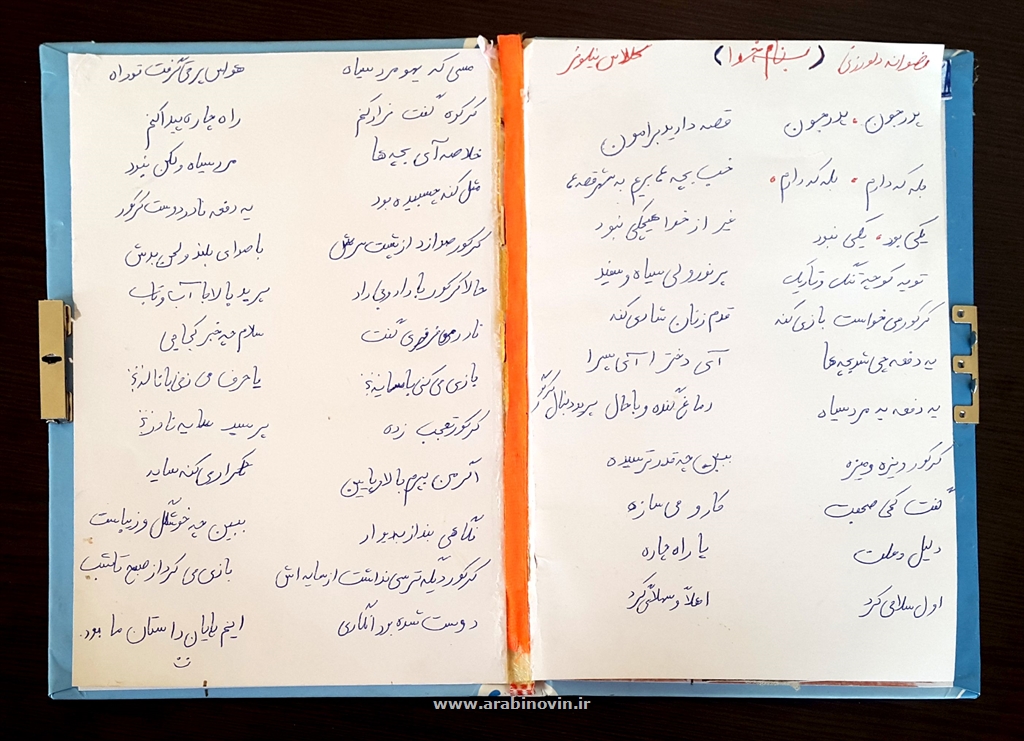 رضوانه دلورزی (بنام خدا) کلاس نیلوفر
پدرجون، پدرجون قصه دارید برامون
بله که دارم، بله که دارم خب بچه ها بریم به شهر قصه ها
یکی بود، یکی نبود غیر از خدا هیچکی نبود
تو یه کوچه تنگ و تاریک پر نور ولی سیاه و سفید
کرکور می خواست بازی کنه قدم زنان شادی کنه
یه دفعه چی شد بچه ها آی دختر آی پسرا
یه دفعه یه مرد سیاه دماغ گنده و باحال پرید دنبال کرکور
کرکور ریزه و میزه ببین چه قدر ترسیده
گفت کمی صحبت کارو می سازه
دلیل و علت یا راه چاره
اول سلامی کرد اهلاً و سهلاً کرد
مسی که یهو مرد سیاه هواس پرمی گرفت تو راه
کرکوره گفت فرار کنم راه چاره پیدا کنم
خلاصه آی بچه ها مرد سیاه ول کن نبود
مثل کنه چسبیده بود یه دفعه نادر دوست کرکور
کرکور صدا زد از پشت سرش با صدای بلند و لحن بدش
حالا کرکور با داد و بی داد پرید بالا با آب و تاب
نادر مو فرفری گفت سلام چه خبر کجایی
بازی می کنی با سایه؟؟ یا حرف می زنی با ناله؟؟
کرکور تعجب زده پرسید سایه نادر؟؟
اگر من بپرم بالا و پایین تکراری کنه سایه
نگاهی بنداز به دیوار ببین چه خوشگل و زیباست
کرکور دیگه ترسی نداشت از سایه اش بازی می کرد از صبح تا شب
دوست شده بود انگاری اینم پایان داستان ما بود.
www.arabinovin.ir